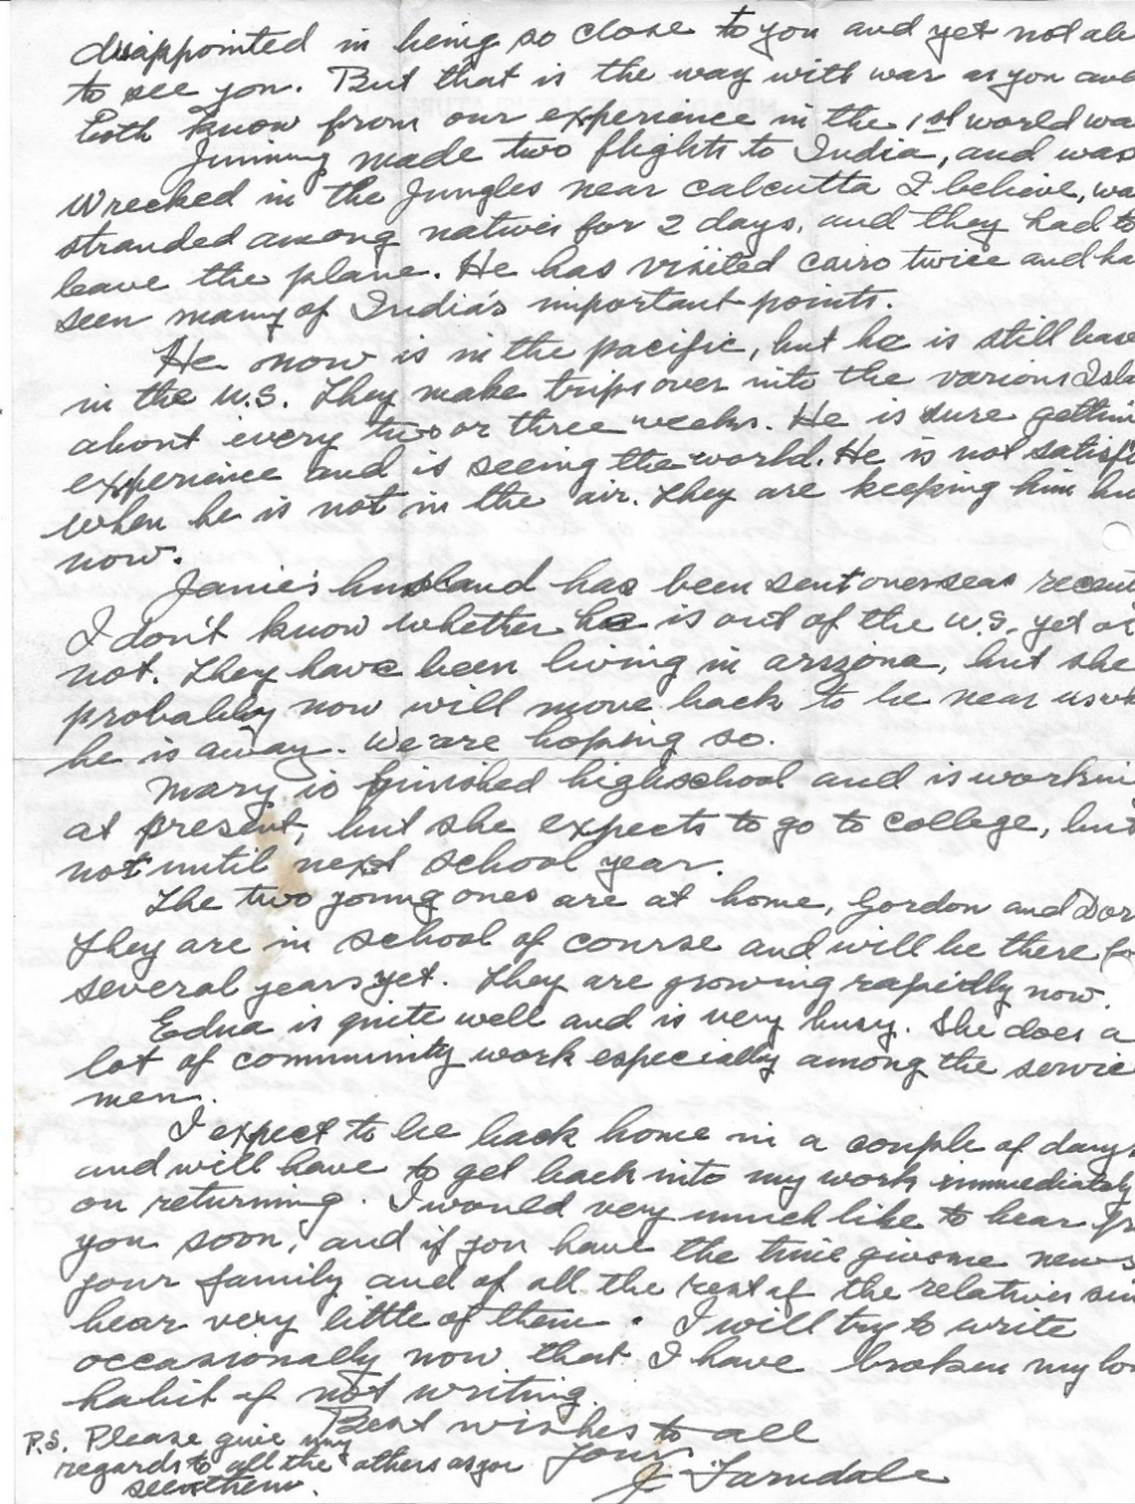 disappointed in being so close to you and yet not
to see you. But that is the way with war as you and
both know from our experience in the 1st world wa
Jimmy made two flights to India, and was
wrecked in the Jungles near calcutta I believe, wa
stranded among natives for 2 days, and they had to
leave the plane. He has visited cairo twice and ha
seen many of India's important points.
He now is in the pacific, but he is still base
in the U.S. They make trips over into the various Isla
about every two or three weeks. He is sure gettin
experience and is seeing the world. He is not satisfi
when he is not in the air. They are keeping him bu
now.
Janie's husband has been sent overseas recent
I don't know whether he is out of the U.S. yet or
not. They have been living in arizona, but she
probably now will move back to be near us wh
he is away. We are hoping so.
Mary is finished highschool and is workin
at present, but she expects to go to college, but
not until next school year.
The two young ones are at home, Gordon and Dor
They are in school of course and will be there fo
several years yet. They are growing rapidly now.
Edna is quite well and is very busy. She does a
lot of community work especially among the servic
men.
I expect to be back home in a couple of days
and will have to get back into my work immediately
on returning. I would very much like to hear fr
you soon, and if you have the time give me news
your family and of all the rest of the relatives sin
hear very little of them. I will try to write
occasionally now that I have broken my lon
habit of not writing.
Best wishes to all
Yours
J Farndale
P.S. Please give my
regards to all the others as you
see them.